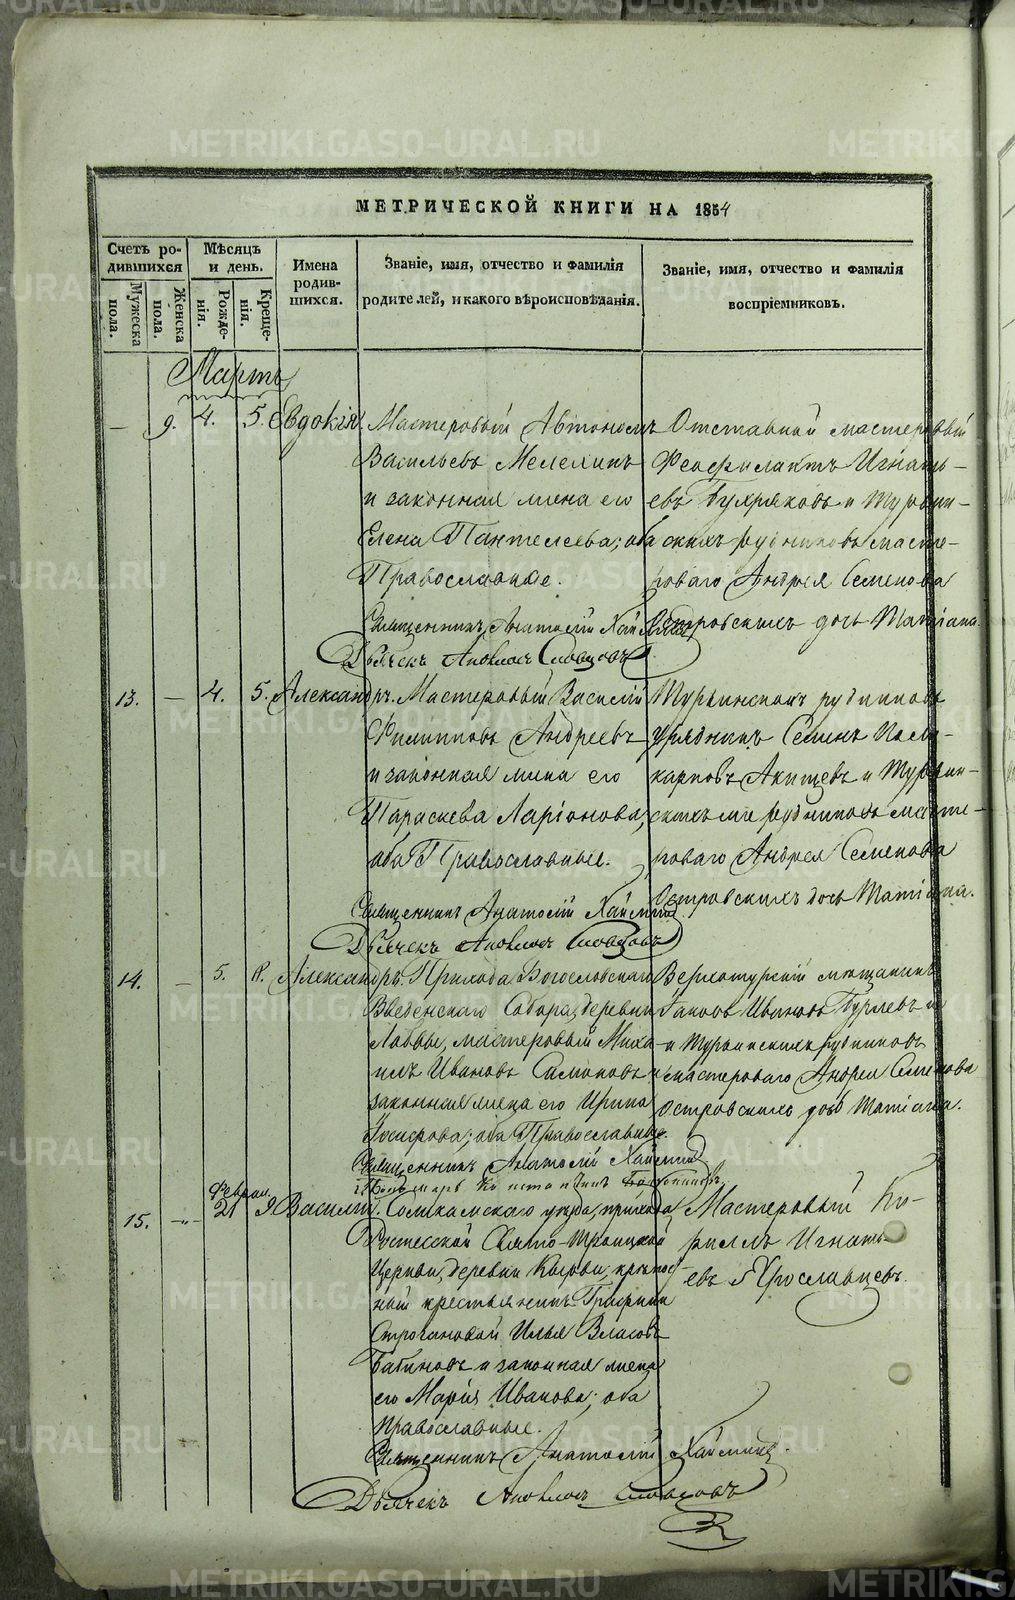 МЕТРИЧЕСКОЙ КНИГИ НА 1854
Счетъ ро-
дившихся
Мужеска пола.
Женска пола.
Мѣсяцъ
и день.
Рожде-
нія.
Креще-
нія.
Имена
родив-
шихся.
Званіе, имя, отчество и фамилія
родителей, и какого вѣроисповѣданія.
Званіе, имя, отчество и фамилія
воспріемниковъ.
Мартъ
— 9. 4. 5. Евдокія
Мастеровый Автономъ
Васильевъ
и законная жена его
Елена Пантелеева; оба
Православные.
Священникъ Анатолій
Дьячекъ Словцовъ
Отставной мастеровый
Феофилактъ Игнать-
евъ Бухряковъ и Турьин-
скихъ рудниковъ масте-
роваго Андрея Семенова
Островскихъ дочь Татіана.
13. — 4. 5. Александръ.
Мастеровый Василій
Филипповъ Андреевъ
и законная жена его
Параскева Ларіонова;
оба Православные.
Священникъ Анатолій
Дьячекъ Словцовъ
Турьинскихъ рудниковъ
урядникъ Семенъ Поли-
карповъ и Турьин-
скихъ же рудниковъ масте-
роваго Андрея Семенова
Островскихъ дочь Татіана.
14. — 5. Александръ.
Прихода Богословскаго
Введенскаго Собора, деревни
мастеровый Миха-
илъ Ивановъ Симоновъ и
законная жена его Ирина
оба Православные.
Священникъ Анатолій
Верхотурскій мѣщанинъ
Яковъ Ивановъ Бурлевъ и
Турьинскихъ рудниковъ
мастероваго Андрея Семенова
Островскихъ дочь Татіана.
Феврал.
15. — 21 9 Василій.
Соликамскаго уѣзда, прихода
Ростесской Свято-Троицкой
Церкви, деревни крѣпост-
ный крестьянинъ Графини
Строгановой Илья Власовъ
Бабиновъ и законная жена
его Марія Иванова; оба
православные.
Священникъ Анатолій
Дьячекъ Словцовъ
Мастеровый Ки-
риллъ Игнать-
евъ Ярославцевъ.
METRIKI.GASO-URAL.RU